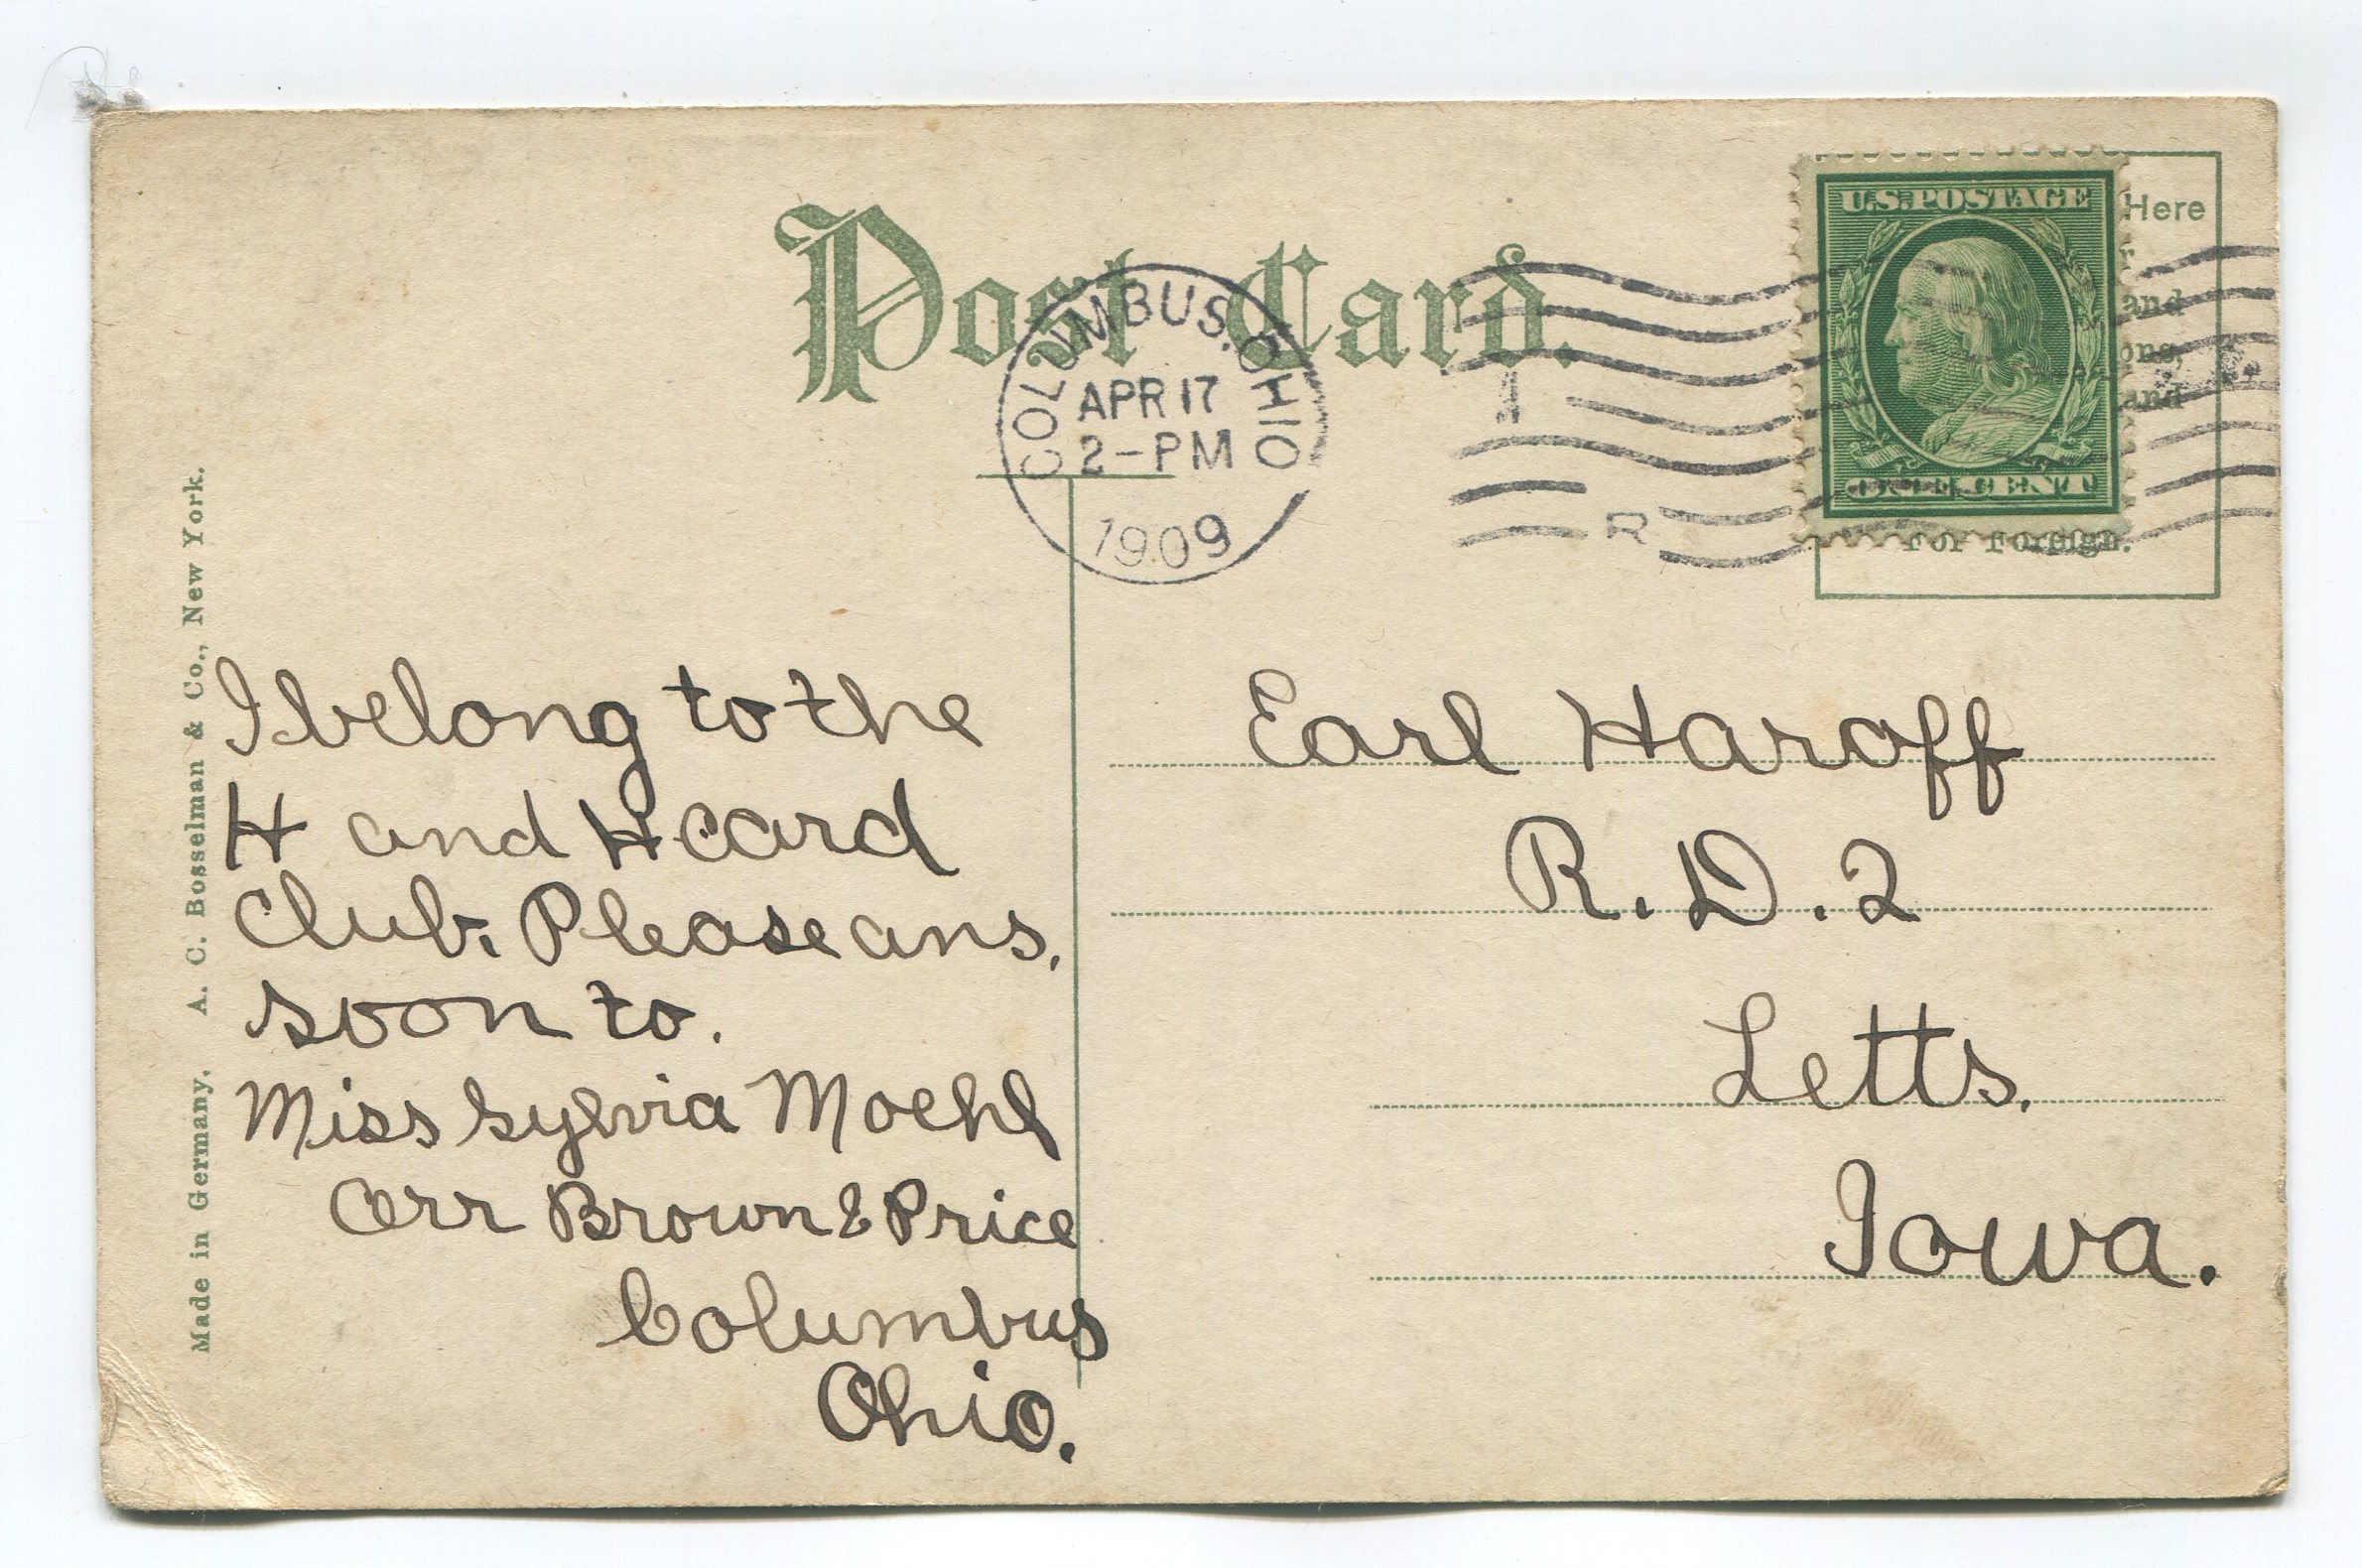 Post Card.
COLUMBUS, OHIO
APR 17
2-PM
1909
U.S. POSTAGE
Here
and
and
For Foreign.
R
Made in Germany. A. C. Bosselman & Co., New York.
I belong to the
H and H card
Club. Please ans.
soon to.
Miss Sylvia Moehl
Orr Brown & Price
Columbus
Ohio.
Earl Haroff
R. D. 2
Letts,
Iowa.